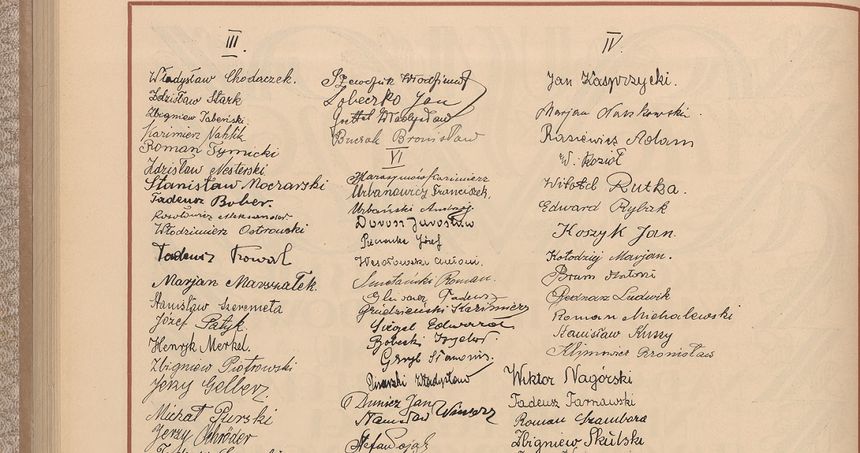 III.
Władysław Chodaczek.
Zdzisław Stark
Zbigniew Tabeński
Kazimierz Nahlik
Roman Tymicki
Zdzisław Nesterski
Stanisław Moczarski
Tadeusz Bober.
Aleksander
Włodzimierz Ostrowski
Tadeusz Kowal
Marjan Marszałek.
Stanisław Szeremeta
Józef Patyk
Henryk Merkel
Zbigniew Piotrowski
Jerzy Gelberz
Michał Pierski
Jerzy Schröder
Szewczuk Włodzimierz
Sobeczko Jan
Guttel Władysław
Buczak Bronisław
VI
Kazimierz
Urbanowicz Franciszek,
Urbański Andrzej
Dorosz Jarosław
Józef
Wesołowski Antoni.
Smolański Roman.
Tadeusz
Grudzieński Kazimierz
Siegel Edward
Bobecki
Gryb Stanisław.
Pisarski Władysław
Dunicz Jan
Stanisław Winiarz
Stefan
IV.
Jan Kasprzycki.
Marjan
Rasiewicz Adam
W. Kozioł
Witold Rutka.
Edward Rybak
Koszyk Jan.
Kołodziej Marjan.
Brum Antoni
Bednarz Ludwik
Roman Michalewski
Stanisław Kussy
Klimowicz Bronisław
Wiktor Nagórski
Tadeusz Tarnawski
Roman Szambora
Zbigniew Skulski